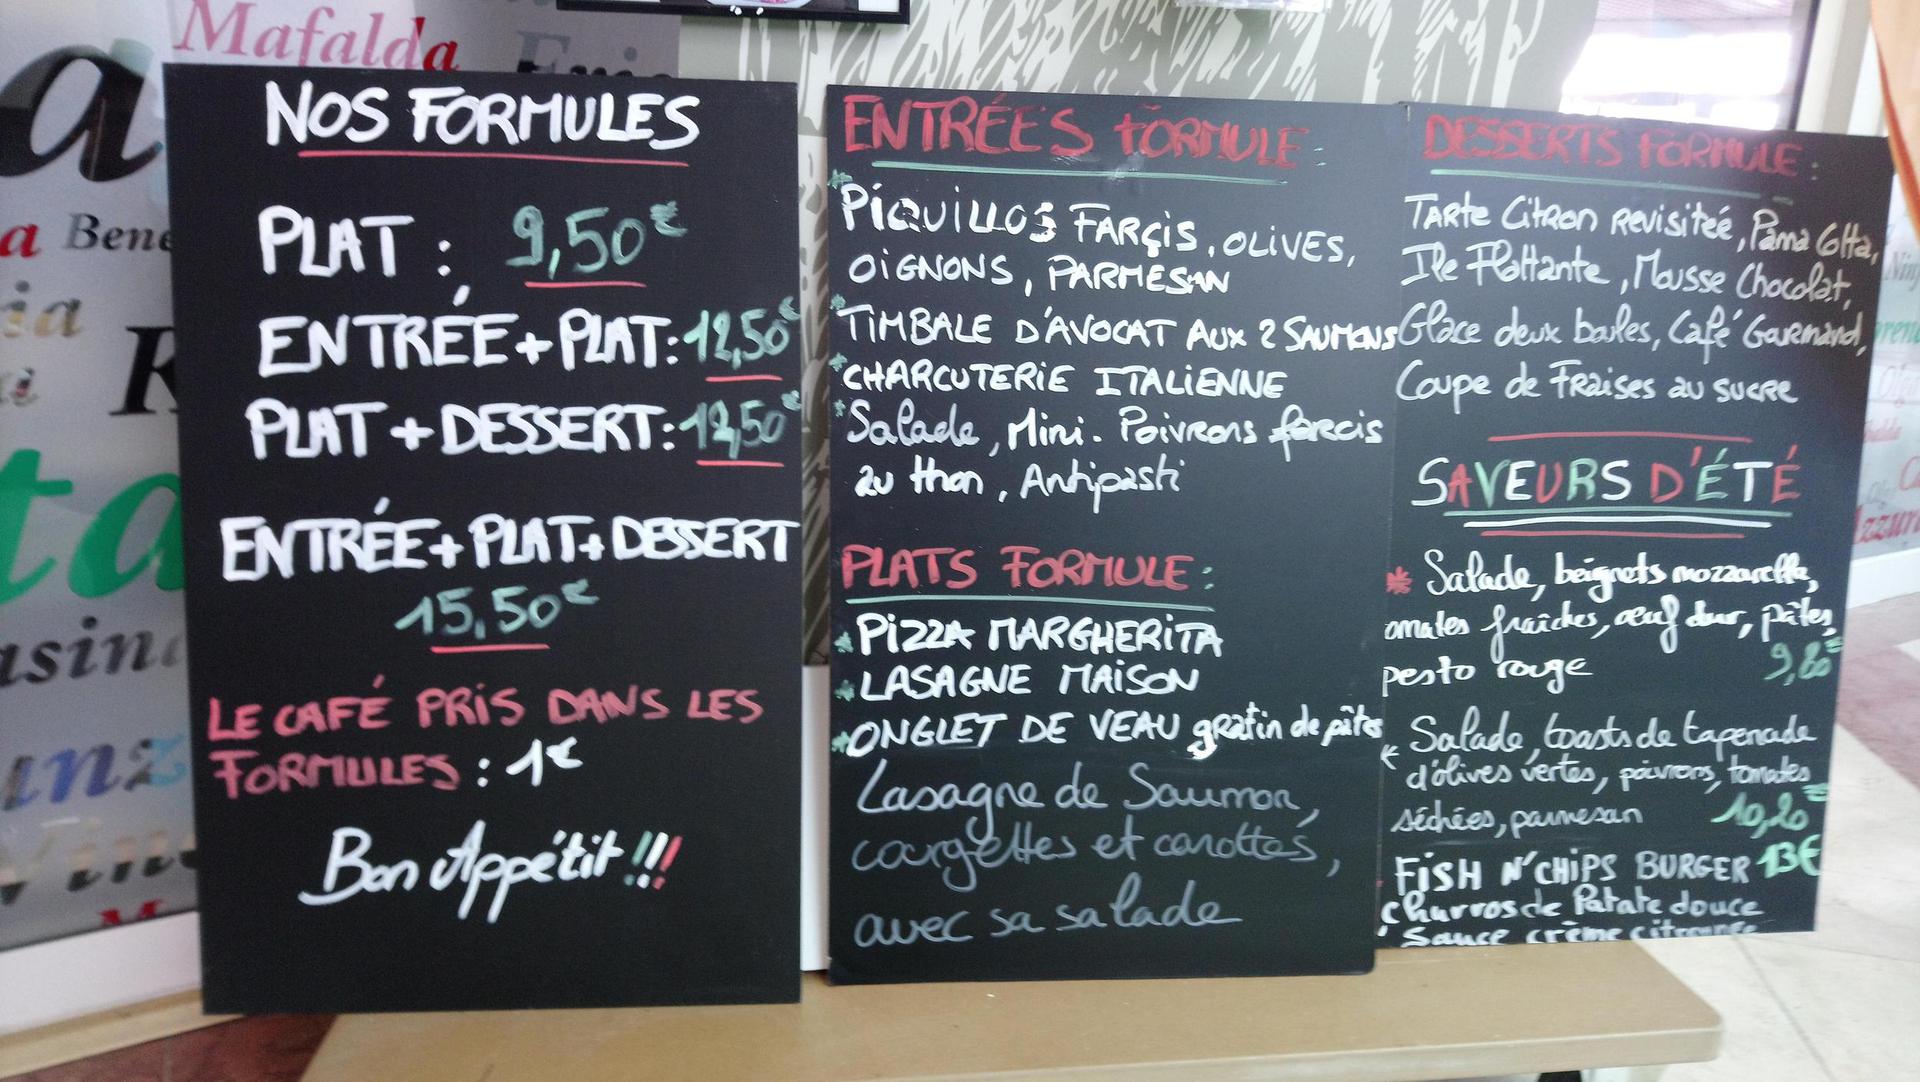 Mafalda
Bene
NOS FORMULES
PLAT : 9,50€
ENTRÉE + PLAT : 12,50€
PLAT + DESSERT : 12,50€
ENTRÉE + PLAT + DESSERT
15,50€
LE CAFÉ PRIS DANS LES
FORMULES : 1€
Bon Appétit !!!
ENTRÉES FORMULE :
* PIQUILLOS FARÇIS, OLIVES,
OIGNONS, PARMESAN
* TIMBALE D'AVOCAT AUX 2 SAUMONS
* CHARCUTERIE ITALIENNE
* Salade, Mini. Poivrons farcis
au thon, Antipasti
PLATS FORMULE :
* PIZZA MARGHERITA
* LASAGNE MAISON
* ONGLET DE VEAU gratin de pâtes
Lasagne de Saumon,
courgettes et carottes,
avec sa salade
DESSERTS FORMULE :
Tarte Citron revisiteé, Pana Cotta,
Ile Flottante, Mousse Chocolat,
Glace deux boules, Café Gourmand,
Coupe de Fraises au sucre
SAVEURS D'ÉTÉ
* Salade, beignets mozzarella,
omates fraîches, œuf dur, pâtes,
pesto rouge 9,80€
* Salade, toasts de tapenade
d'olives vertes, poivrons, tomates
séchées, parmesan 10,20€
FISH N'CHIPS BURGER 13€
Churros de Patate douce
Sauce crème citronnée